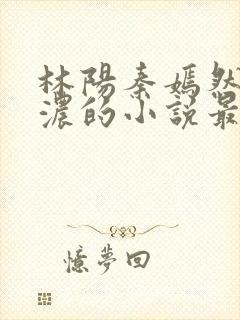 林陽秦嫣然
濃的小說最
憶夢回